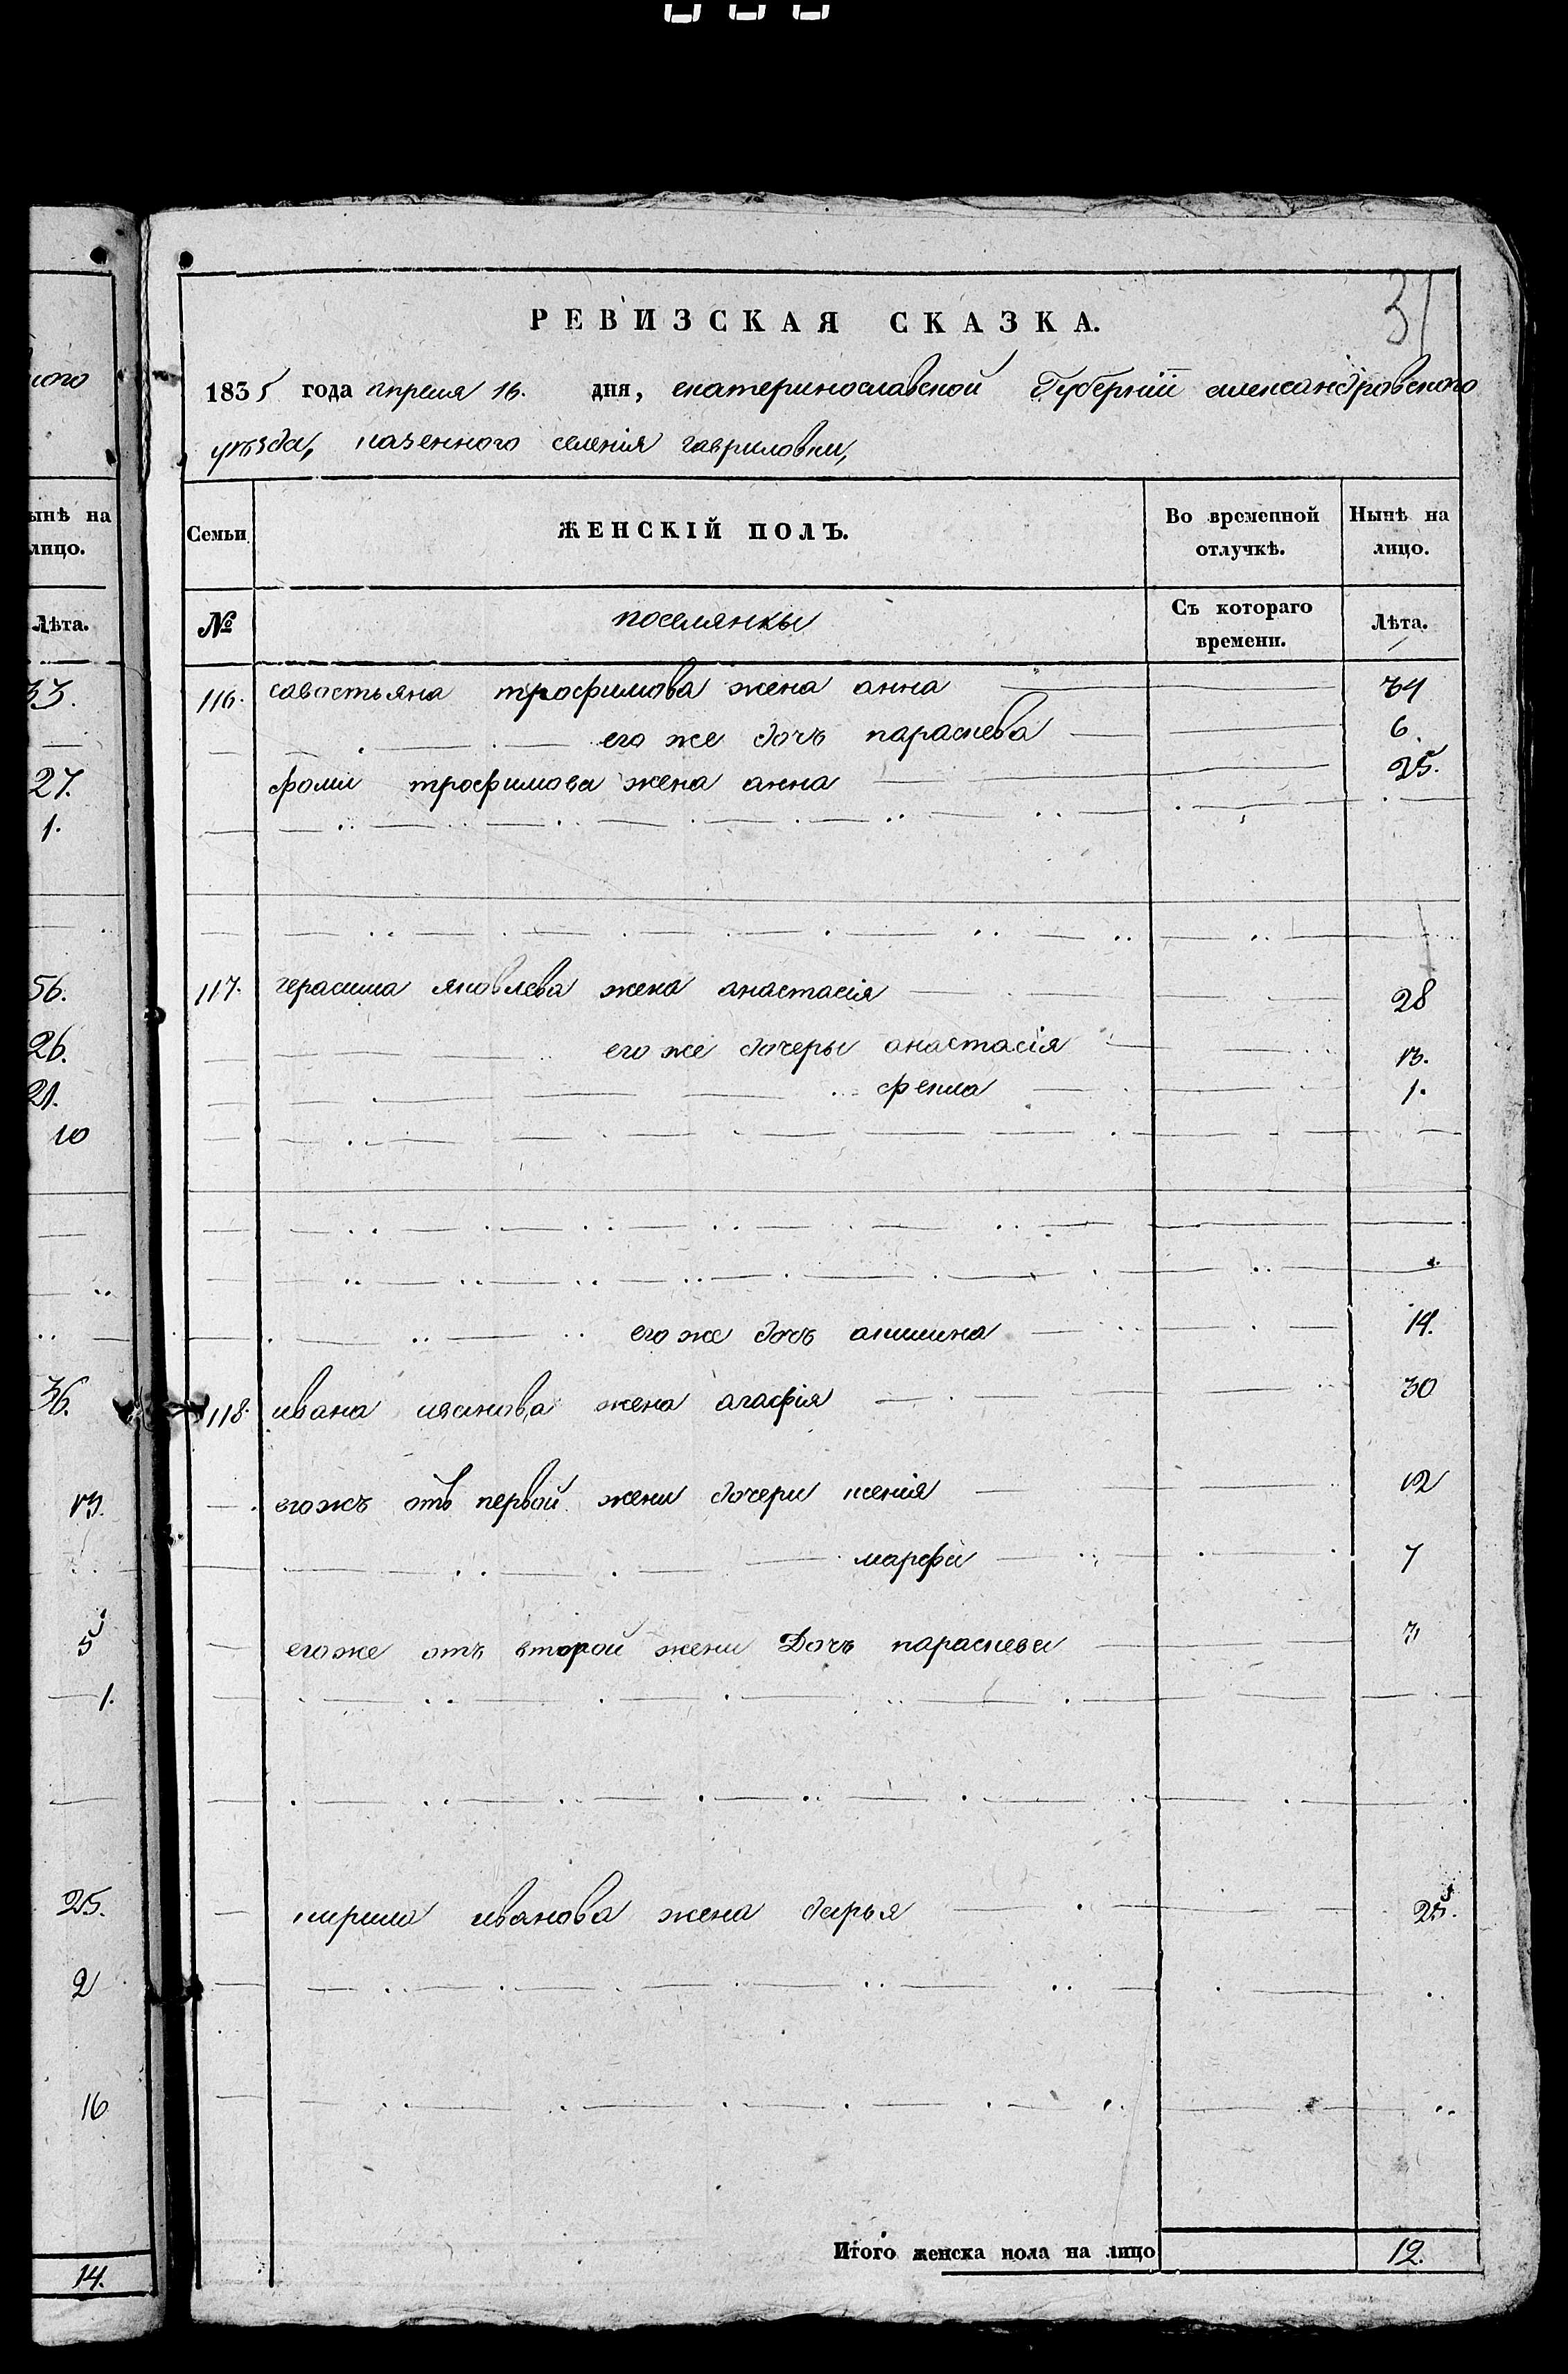 31
РЕВИЗСКАЯ СКАЗКА.
1835 года апреля 16. дня, екатеринославской Губерніи александровского
уѣзда, казенного селенія гавриловки,
ынѣ на
лицо.
Лѣта.
33.
27.
1.
56.
26.
21.
10
36.
13.
5
1.
25.
2
16
14.
Семьи
ЖЕНСКІЙ ПОЛЪ.
Во временной
отлучкѣ.
Нынѣ на
лицо.
№
поселянкы
Съ котораго
времени.
Лѣта.
116. савостьяна трофимова жена анна 34
его же дочь параскева 6.
фоми трофимова жена анна 25.
117. герасима яковлева жена анастасія 28
его же дочеры анастасія 13.
фекла 1.
его же дочь акилина 14.
118. ивана иванова жена агафія 30
его жъ отъ первой жени дочери ксенія 12
марфа 7
его же отъ второй жени Дочь параскева 3
кирила иванова жена дарья 25.
Итого женска пола на лицо 12.